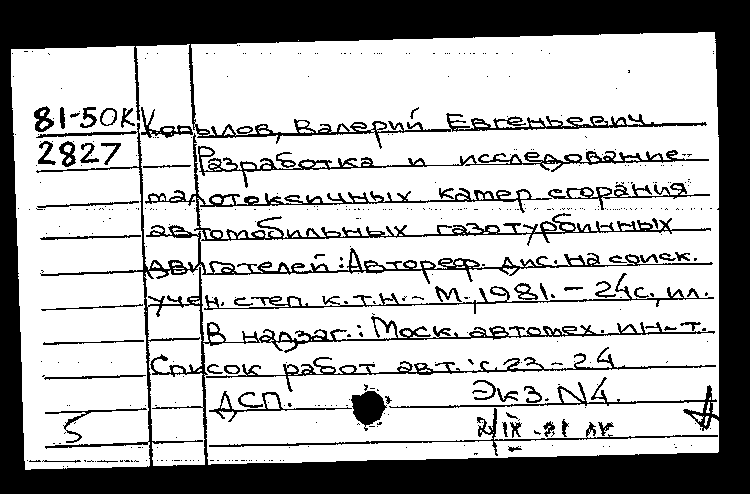 81-50К Копылов, Валерий Евгеньевич.
2827 Разработка и исследование
малотоксичных камер сгорания
автомобильных газотурбинных
двигателей: Автореф. дис. на соиск.
учен. степ. к.т.н. - М., 1981. - 24с., ил.
В надзаг.: Моск. автомех. ин-т.
Список работ авт.: с. 23-24
ДСП. Экз. N4.
5